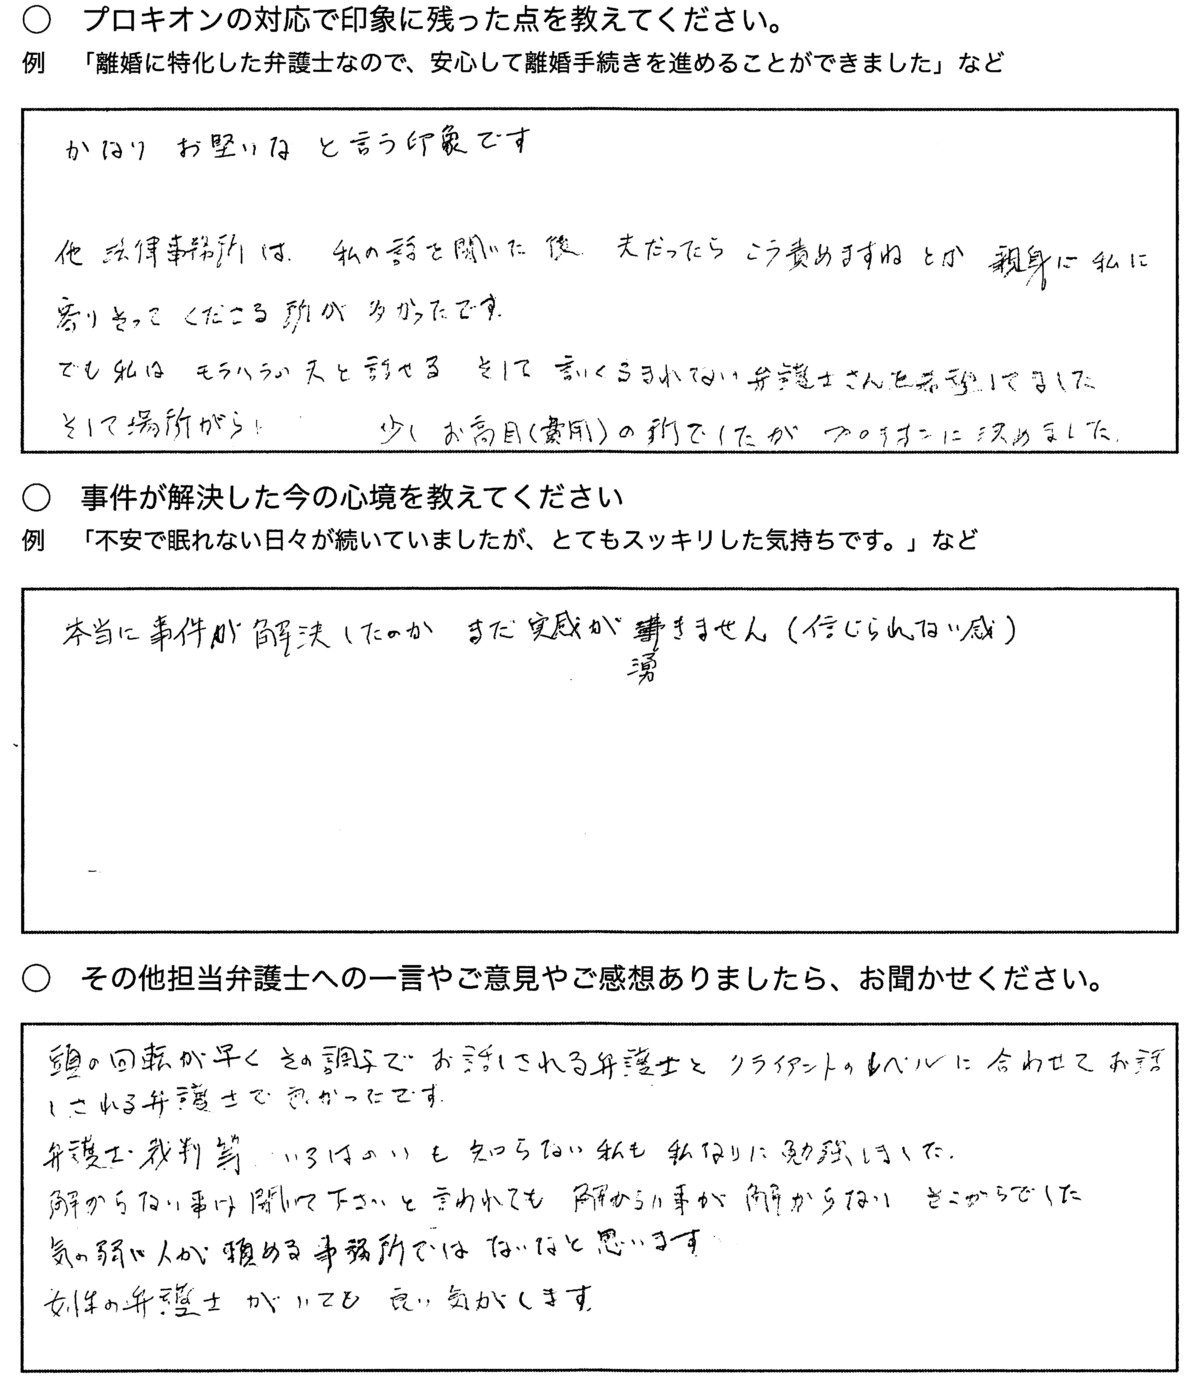 ○ プロキオンの対応で印象に残った点を教えてください。
例 「離婚に特化した弁護士なので、安心して離婚手続きを進めることができました」など
かなり お堅いな と言う印象です
他 法律事務所は、私の話を聞いた後、夫だったら こう責めますねとか 親身に私に
寄りそって くださる 所が 多かったです。
でも私は モラハラの夫と話せる そして 言いくるまれない弁護士さんを希望してました
そして場所がら 少しお高目(費用)の所でしたが プロキオンに決めました。
○ 事件が解決した今の心境を教えてください
例 「不安で眠れない日々が続いていましたが、とてもスッキリした気持ちです。」など
本当に事件が解決したのか まだ実感が きません(信じられない感)
湧
○ その他担当弁護士への一言やご意見やご感想ありましたら、お聞かせください。
頭の回転が早く その調子で お話しされる弁護士と クライアントのレベルに合わせてお話
しされる弁護士で良かったです。
弁護士・裁判等、いろはのいも知らない私も 私なりに勉強しました。
解からない事は聞いて下さいと言われても 解からい事が解からない そこからでした
気の弱い人が頼める事務所ではないなと思います
女性の弁護士がいても 良い気がします。